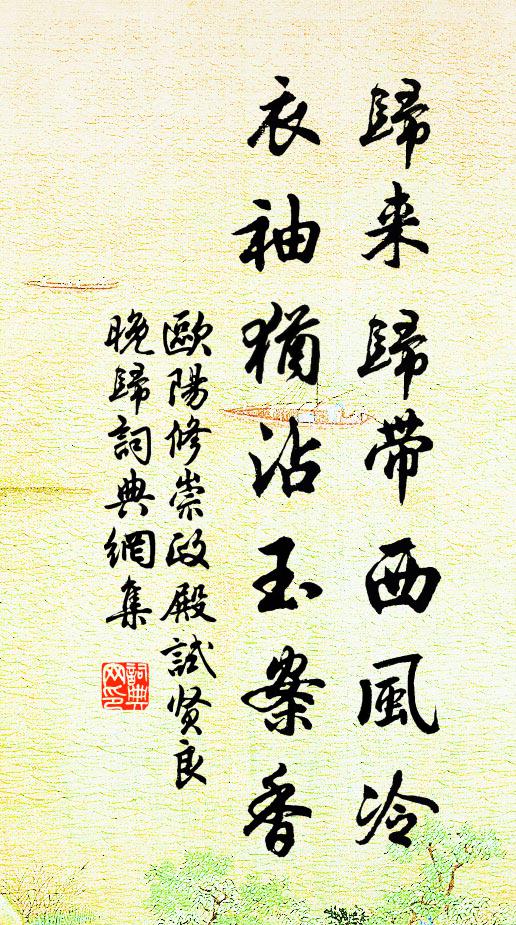 歸来歸带西風冷
衣袖猶沾玉案香
歐陽修崇政殿試贤良
晚歸詞典網集
詞典网印